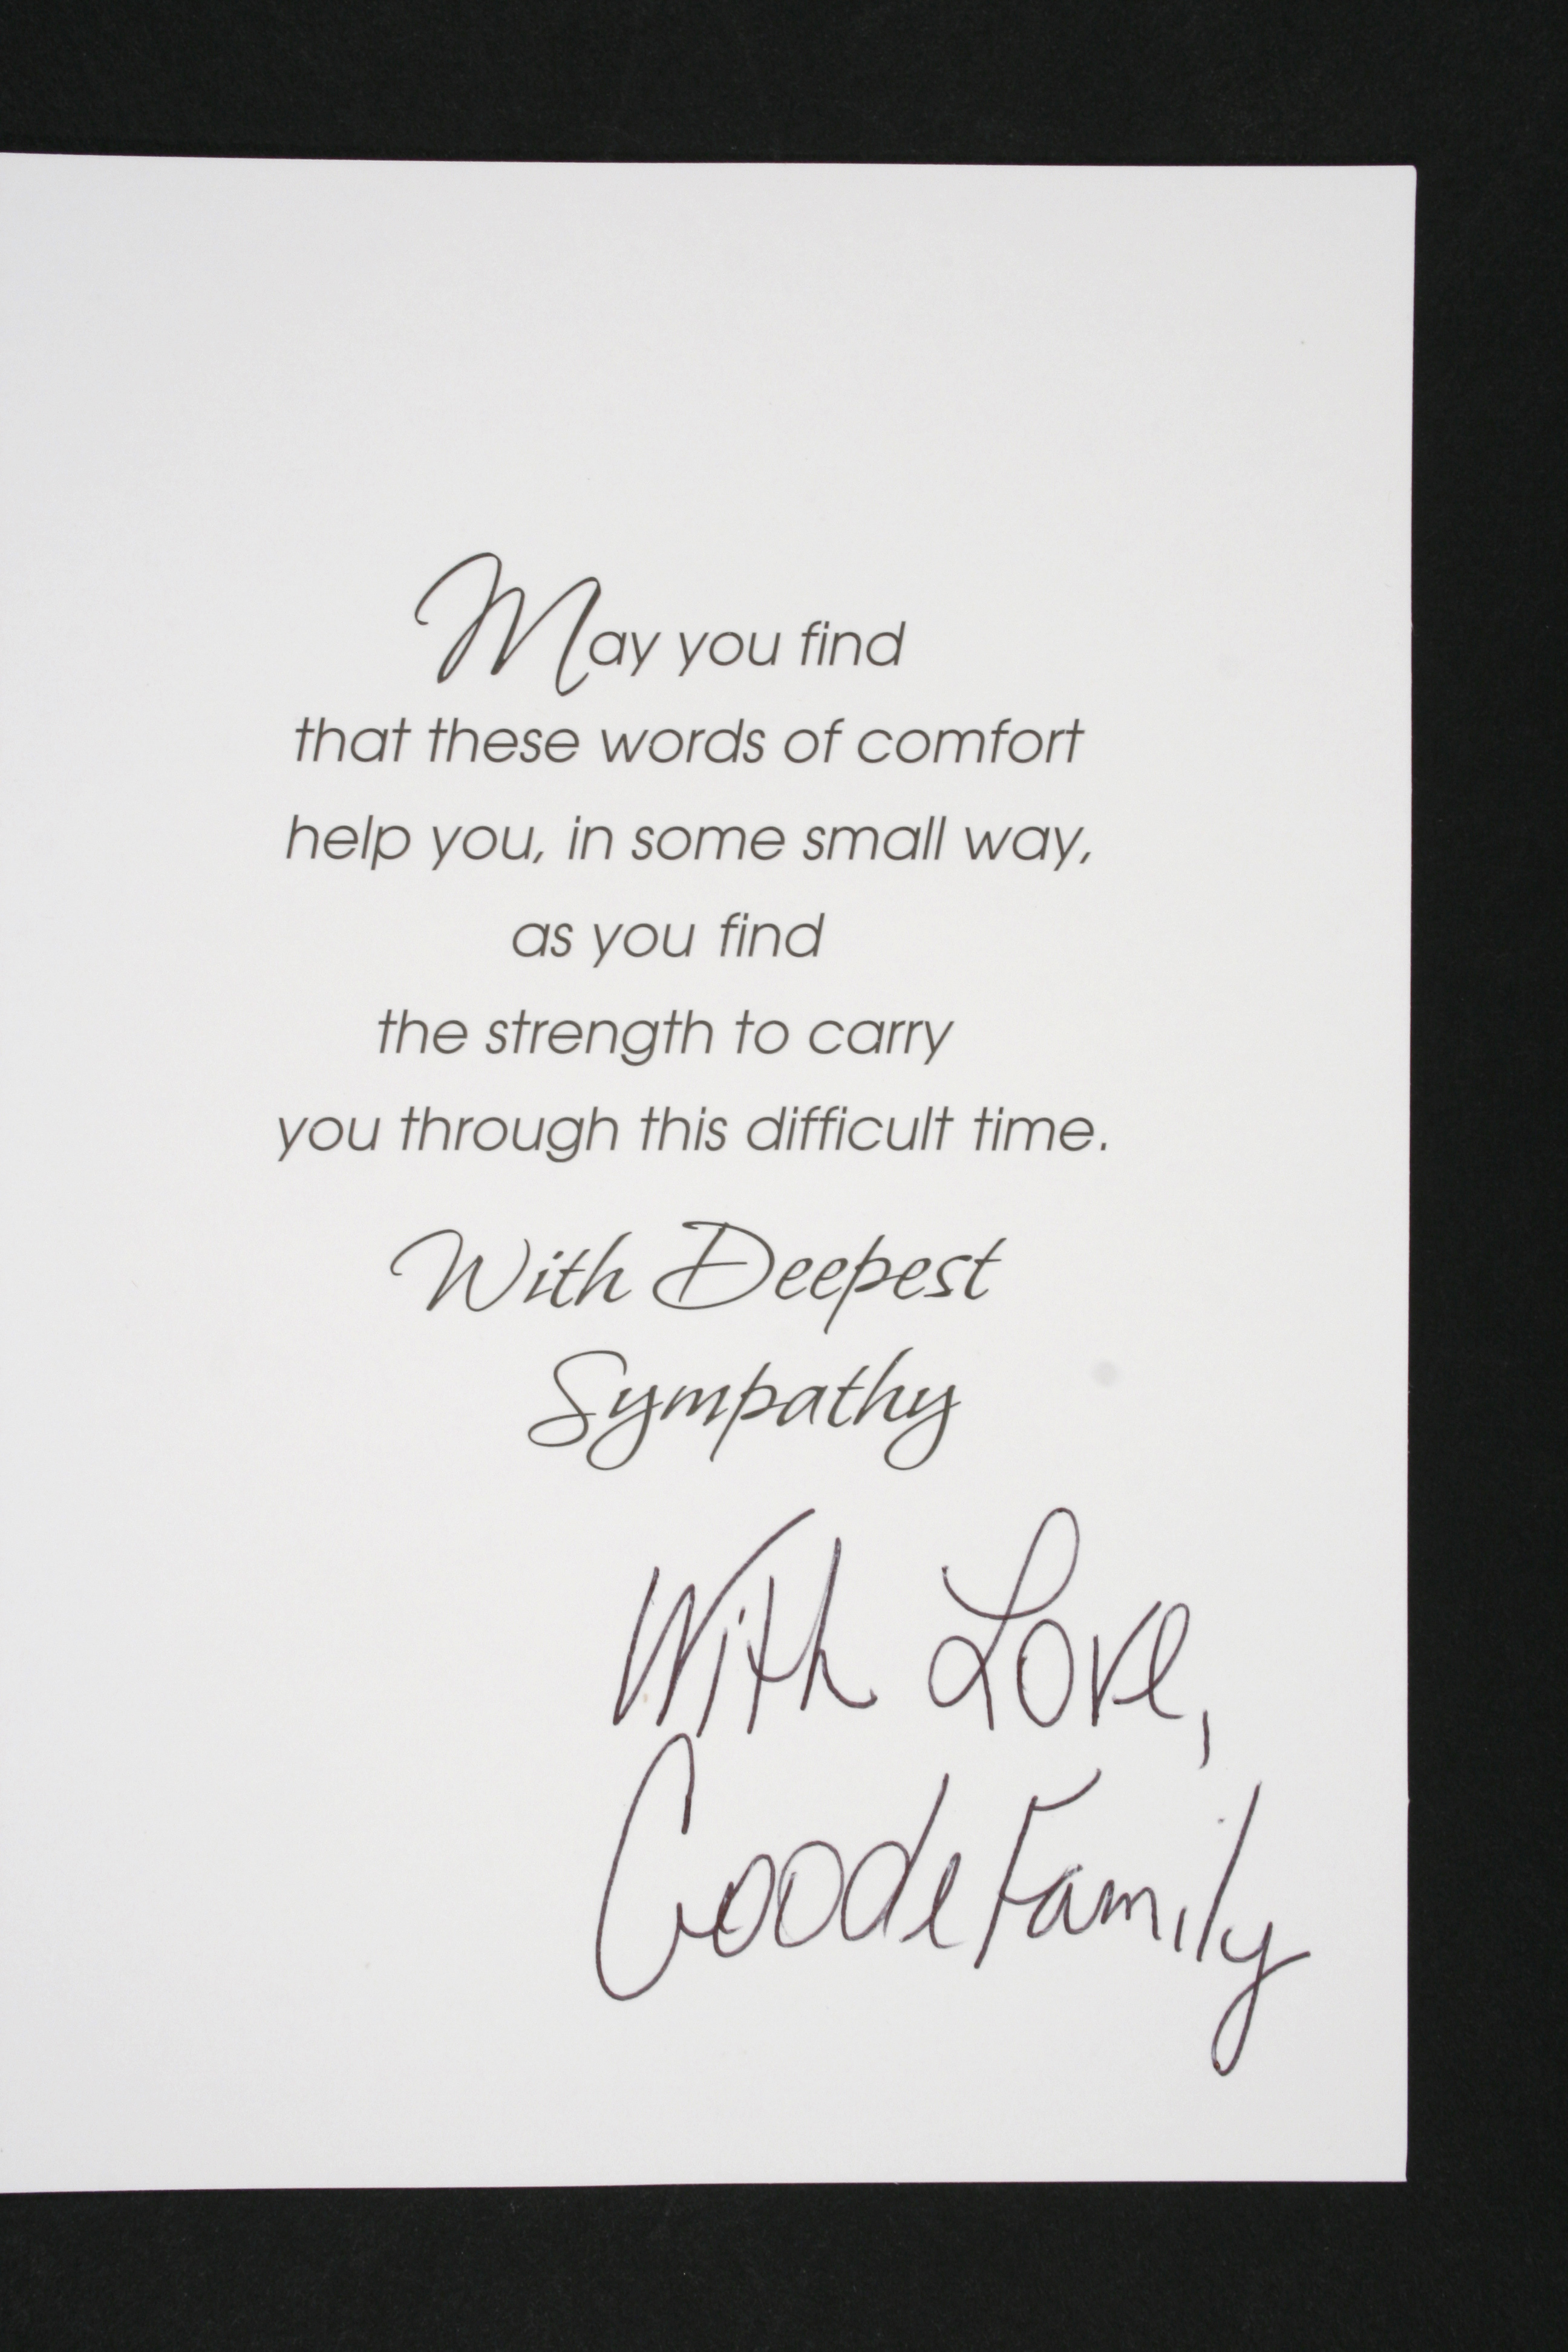 May you find
that these words of comfort
help you, in some small way,
as you find
the strength to carry
you through this difficult time.
With Deepest
Sympathy
With Love,
Goode Family